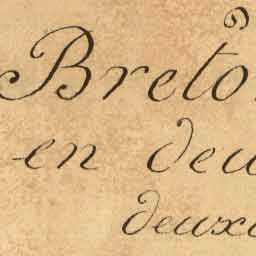 Breto
en deu
deuxi